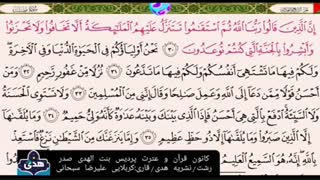 إِنَّ الَّذِينَ قَالُوا رَبُّنَا اللَّهُ ثُمَّ اسْتَقَامُوا تَتَنَزَّلُ عَلَيْهِمُ الْمَلَائِكَةُ أَلَّا تَخَافُوا وَلَا تَحْزَنُوا
وَأَبْشِرُوا بِالْجَنَّةِ الَّتِي كُنْتُمْ تُوعَدُونَ ٣٠ نَحْنُ أَوْلِيَاؤُكُمْ فِي الْحَيَاةِ الدُّنْيَا وَفِي الْآخِرَةِ
وَلَكُمْ فِيهَا مَا تَشْتَهِي أَنْفُسُكُمْ وَلَكُمْ فِيهَا مَا تَدَّعُونَ ٣١ نُزُلًا مِنْ غَفُورٍ رَحِيمٍ ٣٢ وَمَنْ
أَحْسَنُ قَوْلًا مِمَّنْ دَعَا إِلَى اللَّهِ وَعَمِلَ صَالِحًا وَقَالَ إِنَّنِي مِنَ الْمُسْلِمِينَ ٣٣ وَلَا تَسْتَوِي الْحَسَنَةُ
وَلَا السَّيِّئَةُ ادْفَعْ بِالَّتِي هِيَ أَحْسَنُ فَإِذَا الَّذِي بَيْنَكَ وَبَيْنَهُ عَدَاوَةٌ كَأَنَّهُ وَلِيٌّ حَمِيمٌ ٣٤ وَمَا يُلَقَّاهَا
إِلَّا الَّذِينَ صَبَرُوا وَمَا يُلَقَّاهَا إِلَّا ذُو حَظٍّ عَظِيمٍ ٣٥ وَإِمَّا يَنْزَغَنَّكَ مِنَ الشَّيْطَانِ نَزْغٌ فَاسْتَعِذْ
بِاللَّهِ إِنَّهُ هُوَ السَّمِيعُ الْعَلِيمُ
کانون قرآن و عترت پردیس بنت الهدی صدر
رشت/نشریه هدی/قاری:کربلایی علیرضا سبحانی
هدی